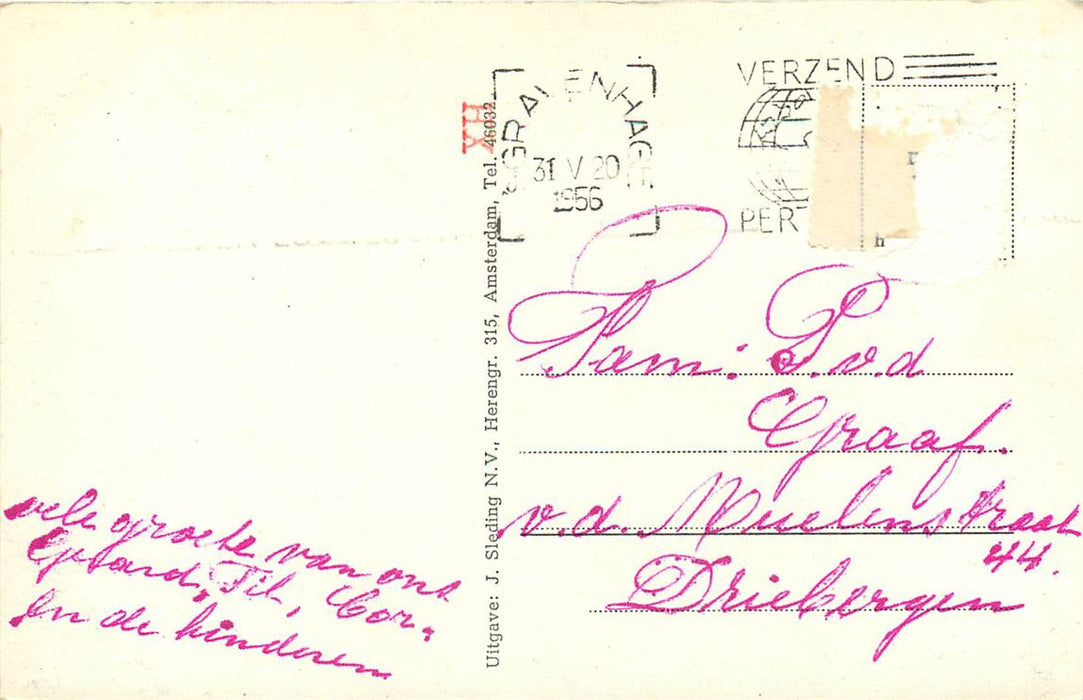 'S GRAVENHAGE
31 V 20
1956
VERZEND
PER
h
HX
Uitgave: J. Sleding N.V., Herengr. 315, Amsterdam, Tel. 46032
Fam: P. v.d
Graaf.
v.d. Muelenstraat
44.
Driebergen
vele groete van ons
Gerard, Til, Cor.
En de kinderen